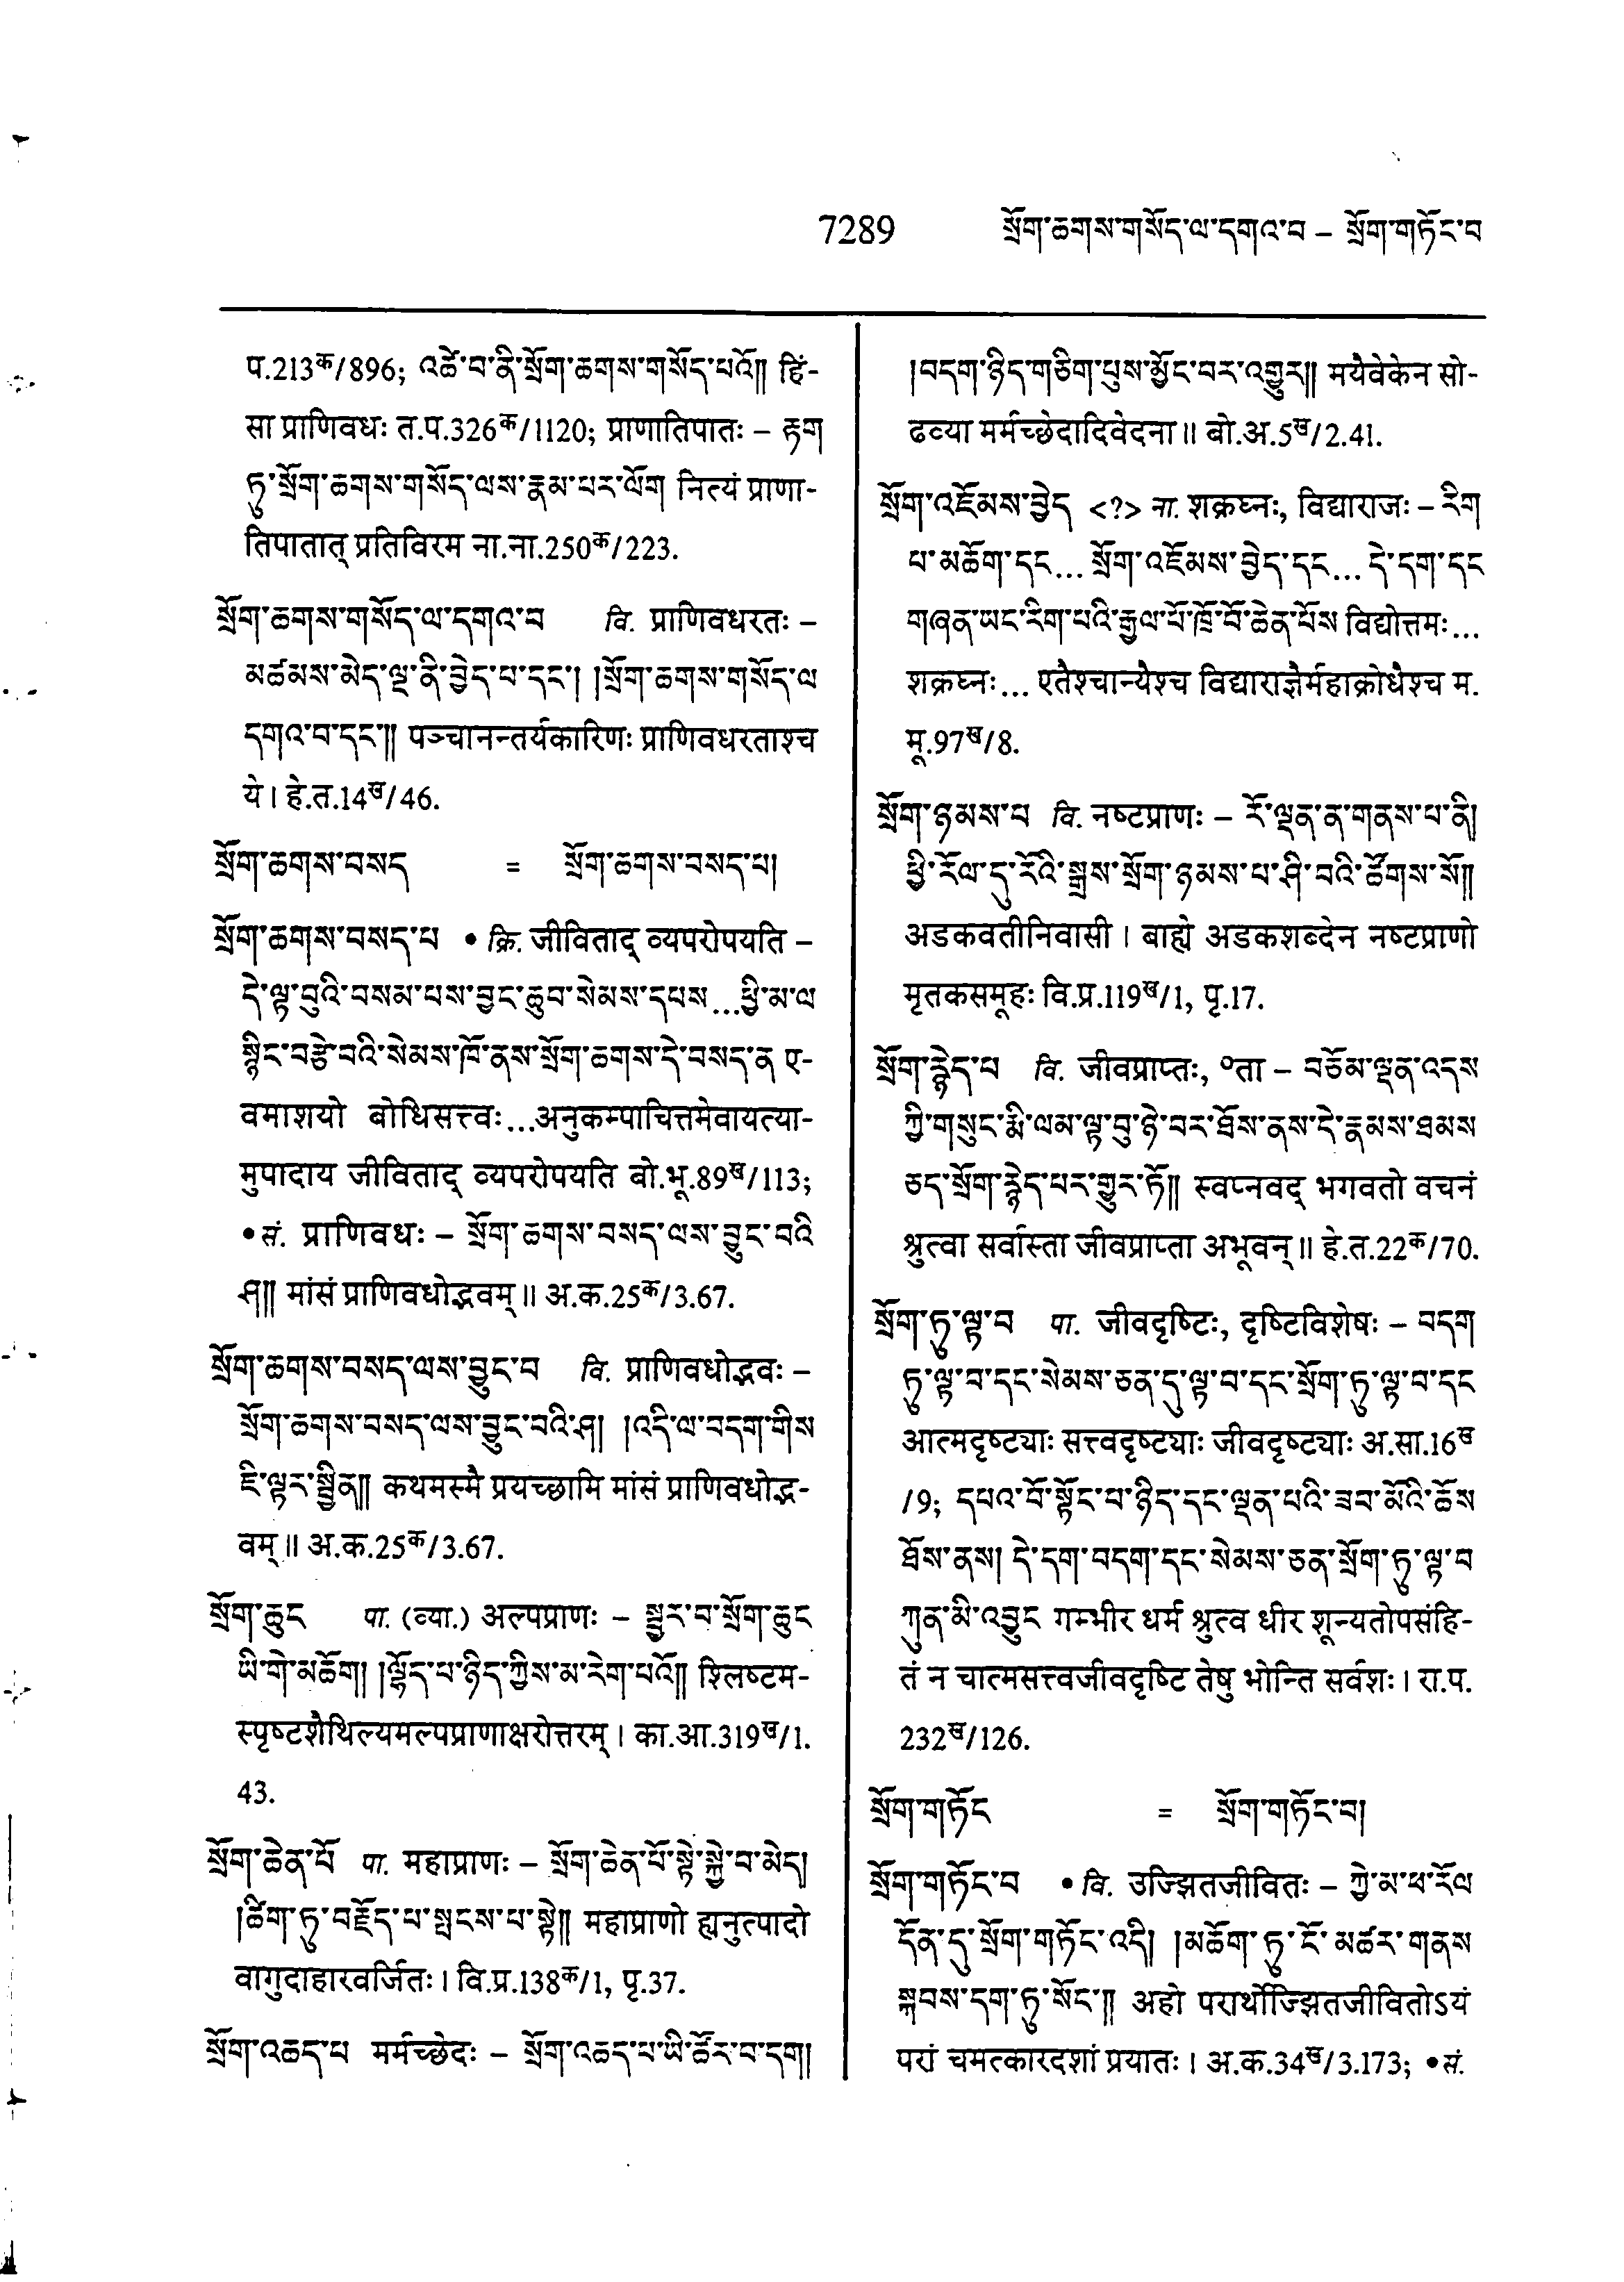 7289 སྲོག་ཆགས་གསོད་ལ་དགའ་བ – སྲོག་གཏོང་བ
प.213क/896; འཚེ་བ་ནི་སྲོག་ཆགས་གསོད་པའོ།། हिं-
सा प्राणिवधः त.प.326क/1120; प्राणातिपातः – རྟག
ཏུ་སྲོག་ཆགས་གསོད་ལས་རྣམ་པར་ལོག नित्यं प्राणा-
तिपातात् प्रतिविरम ना.ना.250क/223.
སྲོག་ཆགས་གསོད་ལ་དགའ་བ वि. प्राणिवधरतः –
མཚམས་མེད་ལྔ་ནི་བྱེད་པ་དང་། །སྲོག་ཆགས་གསོད་ལ
དགའ་བ་དང་།། पञ्चानन्तर्यकारिणः प्राणिवधरताश्च
ये। हे.त.14ख/46.
སྲོག་ཆགས་བསད = སྲོག་ཆགས་བསད་པ།
སྲོག་ཆགས་བསད་པ • क्रि. जीविताद् व्यपरोपयति –
དེ་ལྟ་བུའི་བསམ་པས་བྱང་ཆུབ་སེམས་དཔས...ཕྱི་མ་ལ
སྙིང་བརྩེ་བའི་སེམས་ཁོ་ནས་སྲོག་ཆགས་དེ་བསད་ན ए-
वमाशयो बोधिसत्त्वः...अनुकम्पाचित्तमेवायत्या-
मुपादाय जीविताद् व्यपरोपयति बो.भू.89ख/113;
• सं. प्राणिवधः – སྲོག་ཆགས་བསད་ལས་བྱུང་བའི
ཤ།། मांसं प्राणिवधोद्भवम्॥ अ.क.25क/3.67.
སྲོག་ཆགས་བསད་ལས་བྱུང་བ वि. प्राणिवधोद्भवः –
སྲོག་ཆགས་བསད་ལས་བྱུང་བའི་ཤ། །འདི་ལ་བདག་གིས
ཇི་ལྟར་སྦྱིན།། कथमस्मै प्रयच्छामि मांसं प्राणिवधोद्भ-
वम्॥ अ.क.25क/3.67.
སྲོག་ཆུང पा. (व्या.) अल्पप्राणः – སྦྱར་བ་སྲོག་ཆུང
ཡི་གེ་མཆོག། །ལྷོད་པ་ཉིད་ཀྱིས་མ་རེག་པའོ།། श्लिष्टम-
स्पृष्टशैथिल्यमल्पप्राणाक्षरोत्तरम्। का.आ.319ख/1.
43.
སྲོག་ཆེན་པོ पा. महाप्राणः – སྲོག་ཆེན་པོ་སྟེ་སྐྱེ་བ་མེད།
།ཚིག་ཏུ་བརྗོད་པ་སྤངས་པ་སྟེ།། महाप्राणो ह्यनुत्पादो
वागुदाहारवर्जितः। वि.प्र.138क/1, पृ.37.
སྲོག་འཆད་པ मर्मच्छेदः – སྲོག་འཆད་པ་ཡི་ཚོར་བ་དག།
།བདག་ཉིད་གཅིག་པུས་མྱོང་བར་འགྱུར།། मयैवेकेन सो-
ढव्या मर्मच्छेदादिवेदना॥ बो.अ.5ख/2.41.
སྲོག་འཇོམས་བྱེད <?> ना. शक्रघ्नः, विद्याराजः – རིག
པ་མཆོག་དང... སྲོག་འཇོམས་བྱེད་དང... དེ་དག་དང
གཞན་ཡང་རིག་པའི་རྒྱལ་པོ་ཁྲོ་བོ་ཆེན་པོས विद्योत्तमः...
शक्रघ्नः... एतैश्चान्यैश्च विद्याराज्ञैर्महाक्रोधैश्च म.
मू.97ख/8.
སྲོག་ཉམས་པ वि. नष्टप्राणः – རོ་ལྡན་ན་གནས་པ་ནི།
ཕྱི་རོལ་དུ་རོའི་སྒྲས་སྲོག་ཉམས་པ་ཤི་བའི་ཚོགས་སོ།།
अडकवतीनिवासी। बाह्ये अडकशब्देन नष्टप्राणो
मृतकसमूहः वि.प्र.119ख/1, पृ.17.
སྲོག་རྙེད་པ वि. जीवप्राप्तः, ०ता – བཅོམ་ལྡན་འདས
ཀྱི་གསུང་རྨི་ལམ་ལྟ་བུ་ཉེ་བར་ཐོས་ནས་དེ་རྣམས་ཐམས
ཅད་སྲོག་རྙེད་པར་གྱུར་ཏོ།། स्वप्नवद् भगवतो वचनं
श्रुत्वा सर्वास्ता जीवप्राप्ता अभूवन्॥ हे.त.22क/70.
སྲོག་ཏུ་ལྟ་བ पा. जीवदृष्टिः, दृष्टिविशेषः – བདག
ཏུ་ལྟ་བ་དང་སེམས་ཅན་དུ་ལྟ་བ་དང་སྲོག་ཏུ་ལྟ་བ་དང
आत्मदृष्ट्याः सत्त्वदृष्ट्याः जीवदृष्ट्याः अ.सा.16ख
/9; དཔའ་བོ་སྟོང་པ་ཉིད་དང་ལྡན་པའི་ཟབ་མོའི་ཆོས
ཐོས་ནས། དེ་དག་བདག་དང་སེམས་ཅན་སྲོག་ཏུ་ལྟ་བ
ཀུན་མི་འབྱུང गम्भीर धर्म श्रुत्व धीर शून्यतोपसंहि-
तं न चात्मसत्त्वजीवदृष्टि तेषु भोन्ति सर्वशः। रा.प.
232ख/126.
སྲོག་གཏོང = སྲོག་གཏོང་བ།
སྲོག་གཏོང་བ • वि. उज्झितजीवितः – ཀྱེ་མ་ཕ་རོལ
དོན་དུ་སྲོག་གཏོང་འདི། །མཆོག་ཏུ་ངོ་མཚར་གནས
སྐབས་དག་ཏུ་སོང་།། अहो परार्थोज्झितजीवितोऽयं
परां चमत्कारदशां प्रयातः। अ.क.34ख/3.173; • सं.